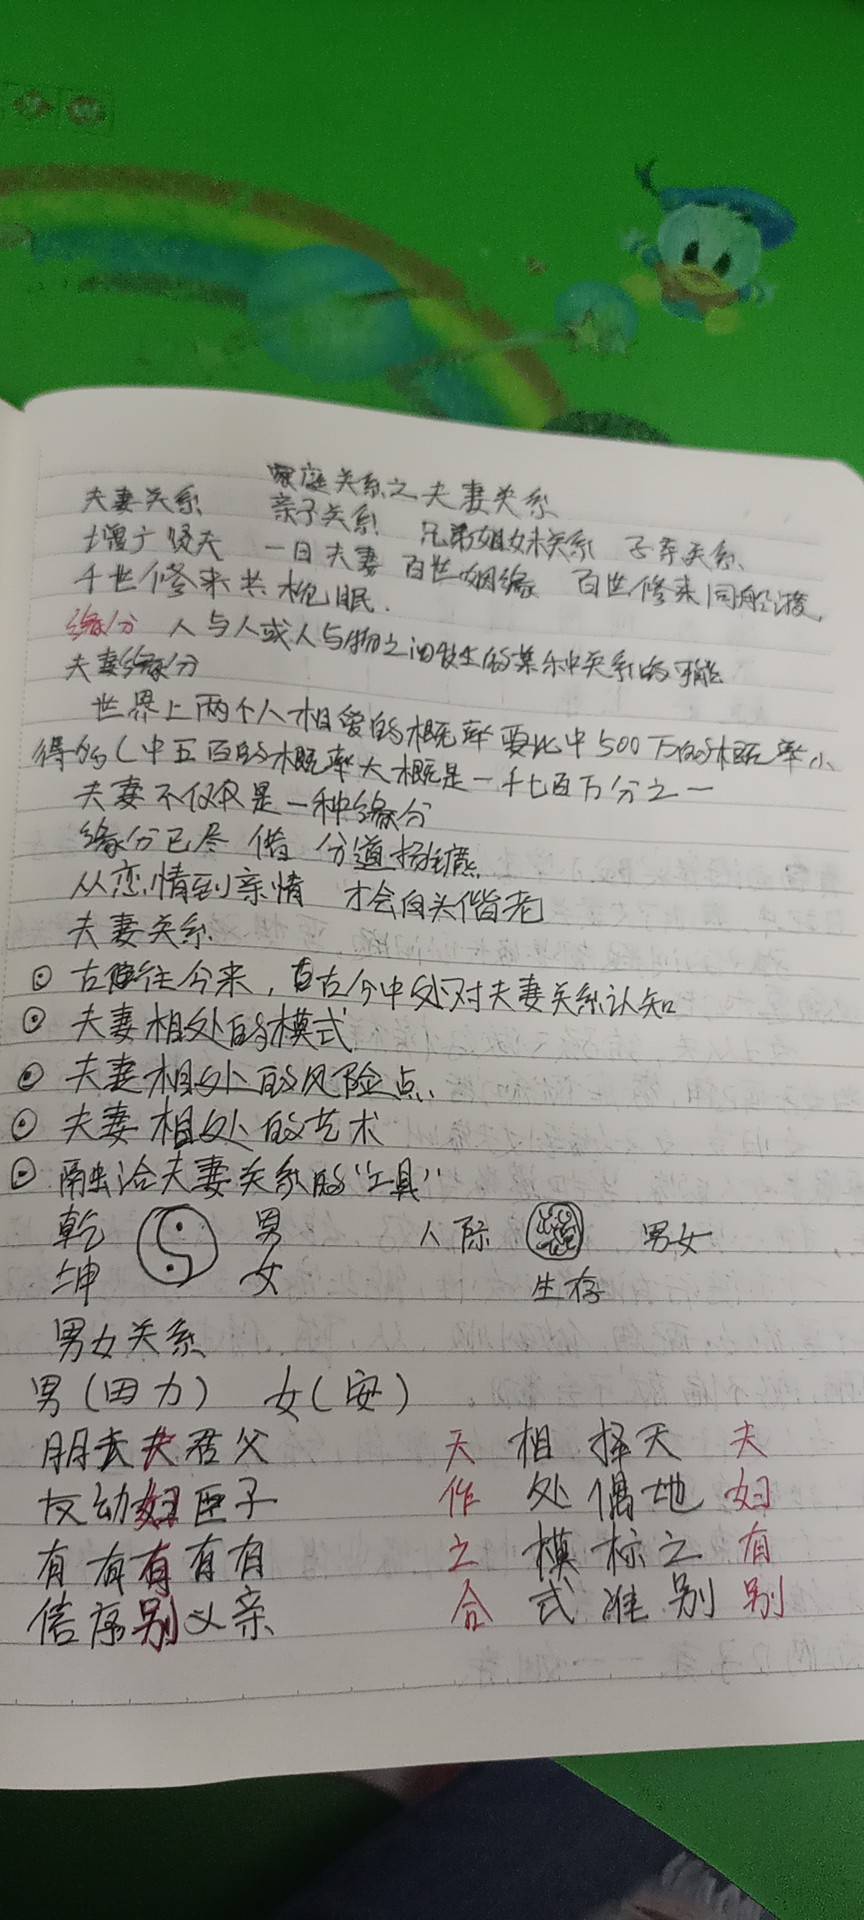 家庭关系之夫妻关系
夫妻关系 亲子关系 兄弟姐妹关系 子亲关系、
增广贤夫 一日夫妻 百世姻缘 百世修来同船渡,
千世修来共枕眠.
缘分 人与人或人与物之间发生的某种关系的可能
夫妻缘分
世界上两个人相爱的概率要比中500万的概率小
得多(中五百的概率大概是一千七百万分之一
夫妻不仅仅是一种缘分
缘分已尽 借 分道扬镳
从恋情到亲情 才会白头偕老
夫妻关系
古往今来,古今中处对夫妻关系认知
夫妻相处的模式
夫妻相处的风险点、
夫妻相处的艺术
融洽夫妻关系的“工具”
乾 男 人际 男女
坤 女 生存
男女关系
男(田力) 女(安)
朋长夫君父 天相择天夫
友幼妇臣子 作处偶地妇
有有有有有 之模标之有
信序别义亲 合式准别别